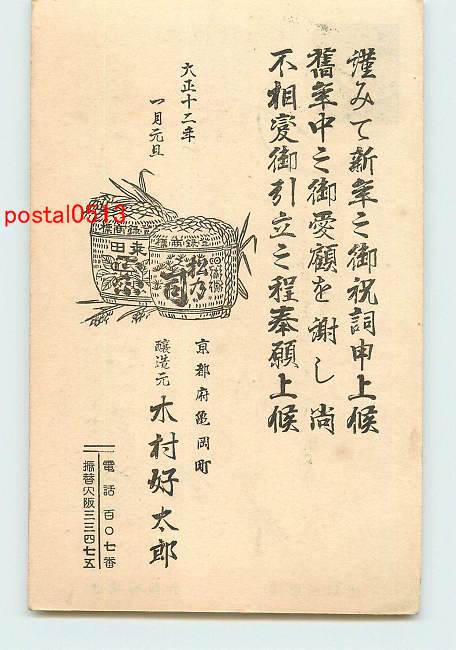 謹みて新年之御祝詞申上候
舊年中之御愛顧を謝し尚
不相変御引立之程奉願上候
大正十二年
一月元旦
登録商標
松乃司
登録商標
乗田
正宗
京都府亀岡町
醸造元 木村好太郎
電話 百〇七番
振替大阪三三四七五
postal0513